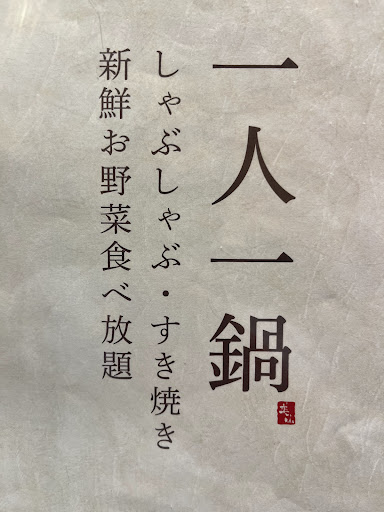 一人一鍋
しゃぶしゃぶ・すき焼き
新鮮お野菜食べ放題